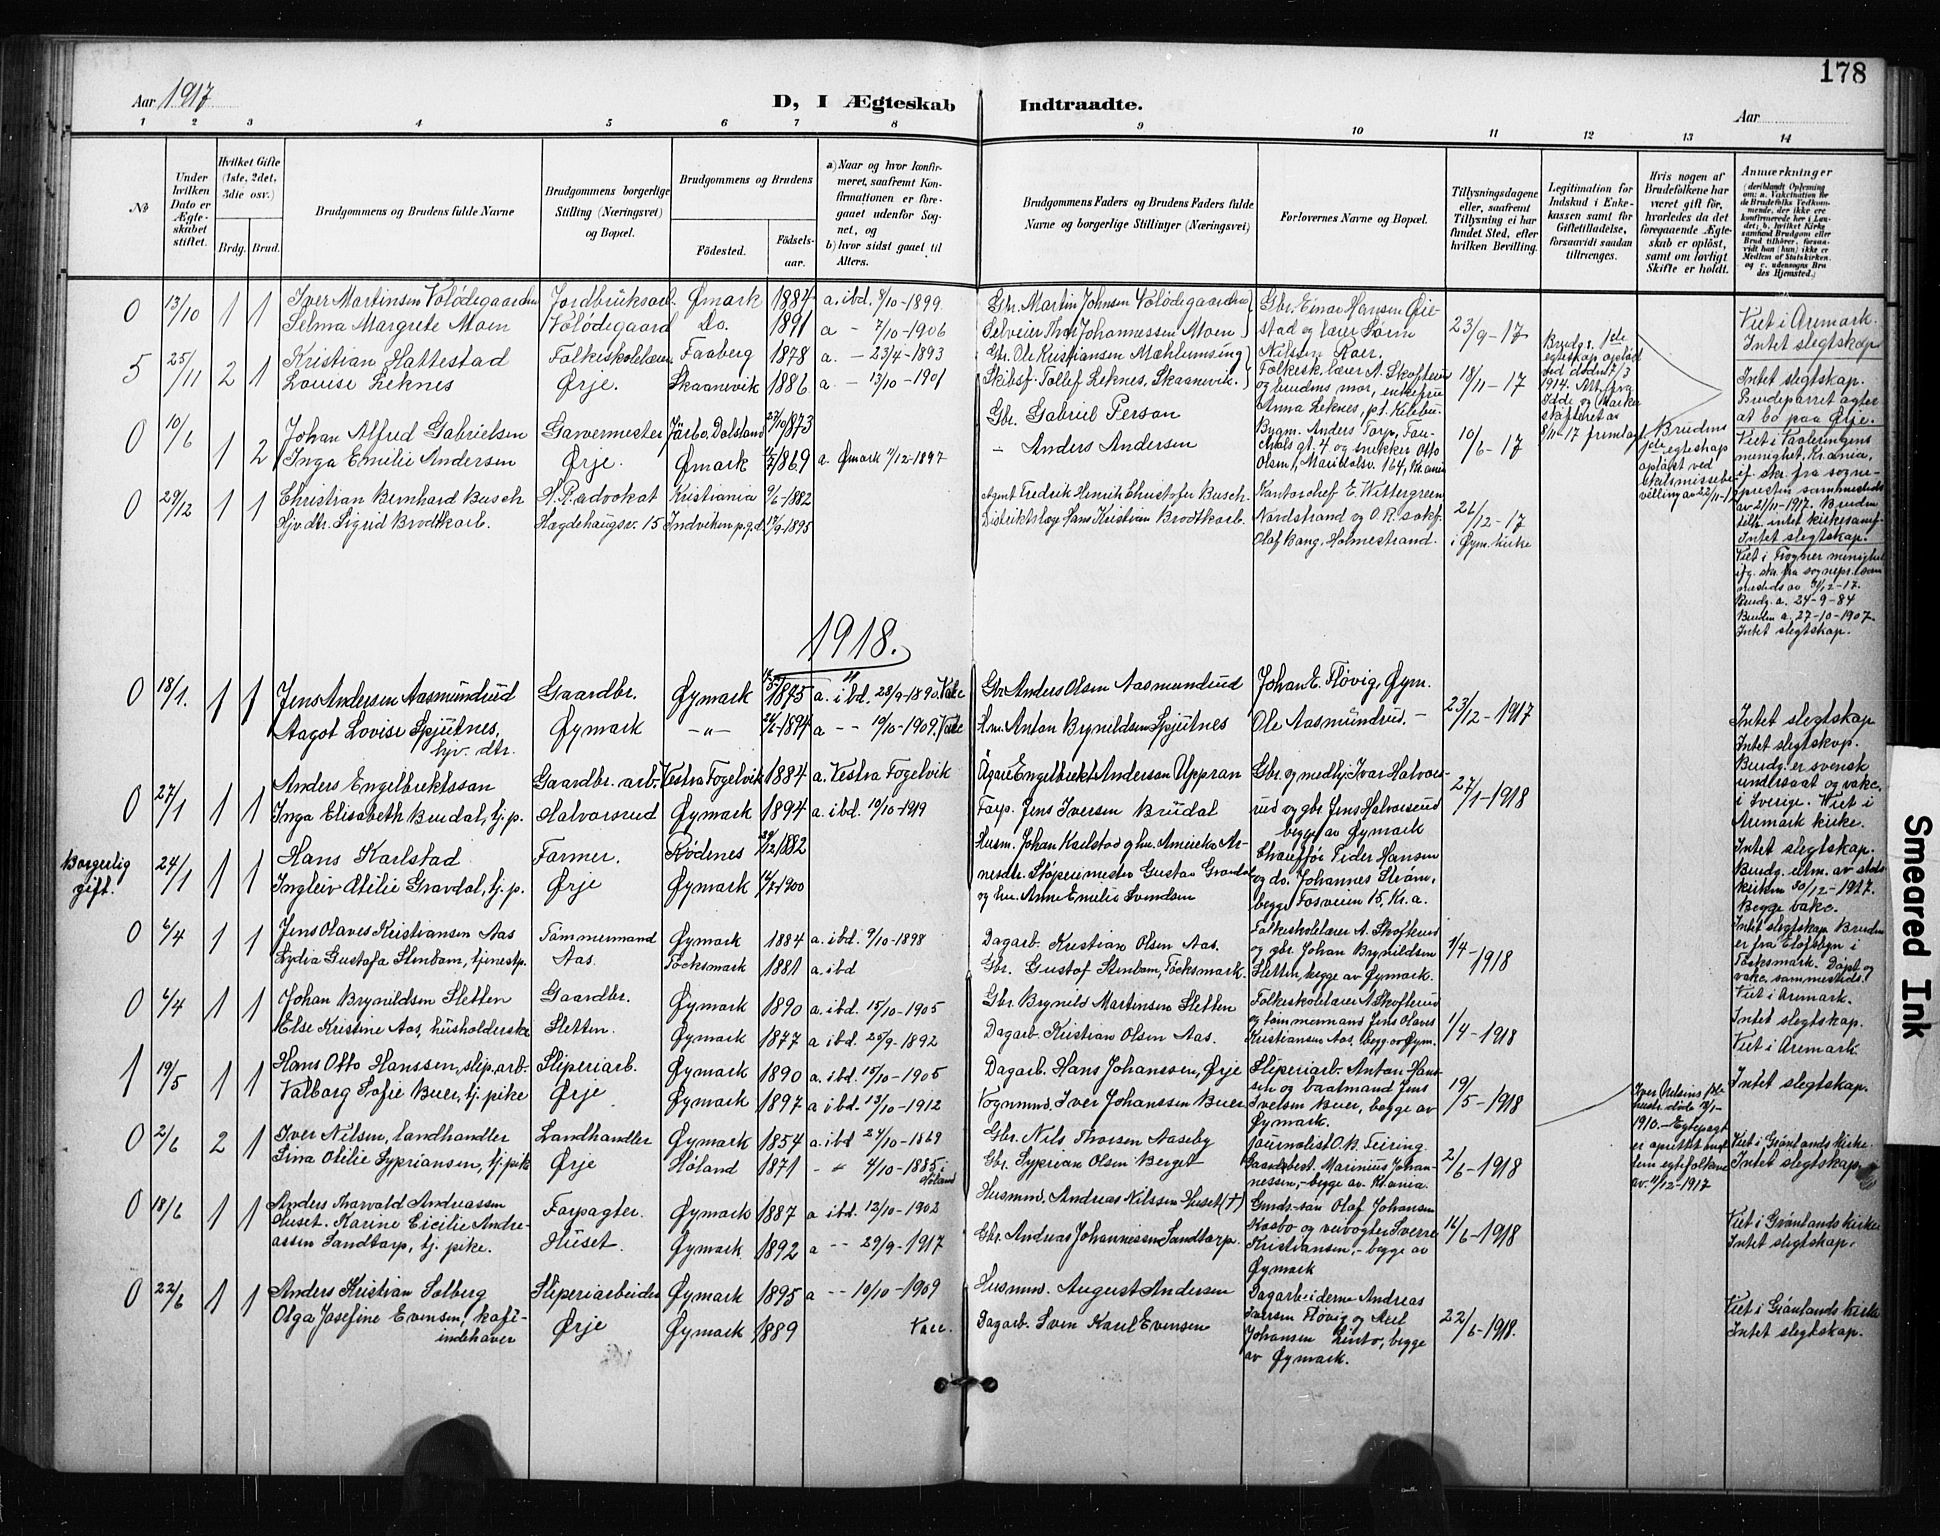 178
Aar 1917
D, I Ægteskab Indtraadte.
Aar
1 2 3 4 5 6 7 8 9 10 11 12 13 14
No
Under hvilken Dato er Ægteskabet stiftet.
Hvilket Gifte (1ste, 2det, 3die osv.)
Brdg. Brud.
Brudgommens og Brudens fulde Navne
Brudgommens borgerlige Stilling (Næringsvei) og Bopæl.
Brudgommens og Brudens
Födested.
Födselsaar.
a) Naar og hvor konfirmeret, saafremt Konfirmationen er foregaaet udenfor Sognet, og
b) hvor sidst gaaet til Alters.
Brudgommens Faders og Brudens Faders fulde Navne og borgerlige Stillinger (Næringsvei)
Forlovernes Navne og Bopæl.
Tillysningsdagene eller, saafremt Tillysning ei har fundet Sted, efter hvilken Bevilling.
Legitimation for Indskud i Enkekassen samt for Giftetilladelse, forsaavidt saadan tiltrænges.
Hvis nogen af Brudefolkene har været gift för, hvorledes da det foregaaende Ægteskab er oplöst, samt om lovligt Skifte er holdt.
Anmærkninger
0 13/10 1 1 Iver Martinsen Volödegaarden Jordbruksarb. Ømark 1884 a. ibd. 8/10-1899 Gbr. Martin Johnsen Volödegaarden Gbr. Einar Hansen Øiestad og lærer Sørm Nilsen Roer. 23/9-17 Viet i Aremark. Intet slegtskap
Selma Margrete Moen Volödegaard Do. 1891 a - 7/10-1906 Selveier Thor Johannessen Moen
5 25/11 2 1 Kristian Hattestad Folkeskolelærer Faaberg 1878 a. - 23/4-1893 Gbr. Ole Kristiansen Mæhlumsing Folkesk.lærer A. Skofterud og brudens mor, enkefrue Anna Leknes, p.t. Kilebu. 18/11-17 Brudg.s 1ste egteskap opløst ved døden 7/3 1914. Intet slegtskap. Brudeparret agter at bo paa Ørje.
Louise Leknes Ørje. Skaanevik 1886 a - 13/10-1901 Skibsf. Tollef Leknes, Skaanevik.
0 10/6 1 2 Johan Alfred Gabrielsen Garvermester Järbo, Dalsland 27/10 1873 Gbr. Gabriel Person Bygm. Anders Tarp, Fauchals gt. 4 og snekker Otto Olsen, Maridalsv. 164, Kr.ania 10/6-17 Brudens 1ste egteskap opløst ved skilsmissebevilling av
Inga Emilie Andersen Ørje. Ømark 1869 a. Ømark 7/12-1897 - Anders Andersen
0 29/12 1 1 Christian Bernhard Busch H.R.advokat Kristiania 9/6-1882 Agent Fredrik Henrik Christofer Busch. Kontorchef E. Wettergreen Nordstrand og O.R. sakf. Olaf Bang, Holmestrand. 26/12-17 i Øym. kirke
Hjv.dtr. Sigrid Brodtkorb. Hægdehaugsv. 15 Indviken p.g.d. 17/9-1895 Distriktslæge Hans Kristian Brodtkorb.
Viet i Frogner menighet
Brudg. a. 24-9-84
Bruden a. 27-10-1907.
Intet slegtskap.
1918.
0 18/1. 1 1 Jens Andersen Aasmundrud Gaardbr. Øymark 1875 a. ibd. 28/9-1890. Vakc Gbr Anders Olsen Aasmundrud Johan E. Fløvig, Øym. 23/12-1917 Intet slegtskap
Aagot Lovise Spjutnes, hjv. dtr. Øymark -"- 1894 a -- 10/10-1909. Vakc Hm. Anton Brynildsen Spjutnes Ole Aasmundrud. -
0 27/1 1 1 Anders Engelbrektsson Gaardbr. arb. Vestra Fogelvik 1884 a. Vestra Fogelvik Ägare Engelbrekt Anderson Uppran Gbr. og medhj. Ivar Halvorsrud og gbr. Jens Halvorsrud begge av Øymark 27/1-1918 Intet slegtskap. Brudg. er svensk undersaat og vakc. i Sverige. Viet i Aremark kirke.
Inga Elisabeth Brudal, tj.p. Halvorsrud Øymark 1894 a. ibd. 10/10-1919 Farp. Jens Iversen Brudal
Borgerlig gift. 24/1 1 1 Hans Karlstad Farmer. Rødenes 1882 Husm. Johan Karlstad og hu. Chauffør Peder Hansen og do. Johannes Strøm, begge Fosveien 15, Kr.a. Intet slegtskap. Brudg. utm. av statskirken 30/12-1917. Begge vakc.
Ingleiv Otilie Gravdal, tj.p. Ørje Øymark 1900 Støperimester Gustav Gravdal og hu. Anne Emilie Svendsen
0 6/4 1 1 Jens Olaves Kristiansen Aas Tømmermand Øymark 1884 a. ibd. 9/10-1898 Dagarb. Kristian Olsen Aas. Folkeskolelærer A. Skofterud og gbr. Johan Brynildsen Sletten, begge av Øymark. 1/4-1918 Intet slegtskap. Bruden er fra Elofsbyn i Töcksmark. Døpt og vakc. sammesteds. Viet i Aremark.
Lydia Gustafa Stenbom, tjenestp. Aas. Töcksmark 1881 a. ibd Gbr. Gustof Stenbom, Töcksmark.
0 6/4 1 1 Johan Brynildsen Sletten Gaardbr. Øymark 1890 a. ibd. 15/10-1905 Gbr. Brynild Martinsen Sletten Folkeskolelærer A. Skofterud og tømmermand Jens Olaves Kristiansen Aas, begg. av Øym. 1/4-1918 Intet slegtskap. Viet i Aremark.
Else Kristine Aas, husholderske Sletten. Øymark 1877 a ibd. 25/9-1892 Dagarb. Kristian Olsen Aas.
1 19/5 1 1 Hans Otto Hanssen, slip.arb. Sliperiarb. Øymark 1890 a. ibd. 15/10-1905 Dagarb. Hans Johanssen, Ørje Sliperiarb. Anton Hanssen og baatmand Jens Ivelsen Buer, begge av Øymark. 19/5-1918 Intet slegtskap.
Valborg Sofie Buer, tj. pike Ørje Øymark 1897 a ibd. 13/10-1912 Vognmnd. Iver Johanssen Buer
0 2/6 2 1 Iver Nilsen, landhandler Landhandler Øymark 1854 a. ibd 24/10-1869 Gbr. Nils Thorsen Aaseby Journalist O.A. Feiring Gaardbest. Marinius Johannessen, - begge av Kr.ania. 2/6-1918 Iver Nilsens 1ste hustr. døde 1910. - Egtepagt er oprettet mellem egtefolkene av 11/12-1917 Viet i Grønlands kirke. Intet slegtskap
Lina Otilie Sypriansen, tj. pik Ørje Høland 1871 - " 4/10-1885 i Høland Gbr. Syprian Olsen Berget
0 18/6 1 1 Anders Thorvald Andreassen Huset. Farpagter. Øymark 1887 a ibd. 12/10-1902 Husmnd. Andreas Nilssen Huset (†) Grnds. søn Olaf Johansen Kasbo og veivogter Sverre Kristiansen, - begge av Øymark 16/6-1918 Viet i Grønlands kirke Intet slegtskap.
Karine Cicilie Andreassen Sandtorp, tj. pike. Huset. Øymark 1892 a -- 29/9-1917 Gbr. Andreas Johannessen Sandtorp.
0 22/6 1 1 Anders Kristian Solberg Sliperiarbeider Øymark 1895 a -- 10/10-1909 Husmnd. August Andersen Dagarbeiderne Andreas Iversen Fløvig og Axel Johansen Linto, begge av Øymark. 22/6-1918. Viet i Grønlands kirke Intet slegtskap.
Olga Josefine Evensen, kaféindehaver Ørje Øymark 1889 Vacc. Dagarb. Sven Karl Evensen
Smeared Ink